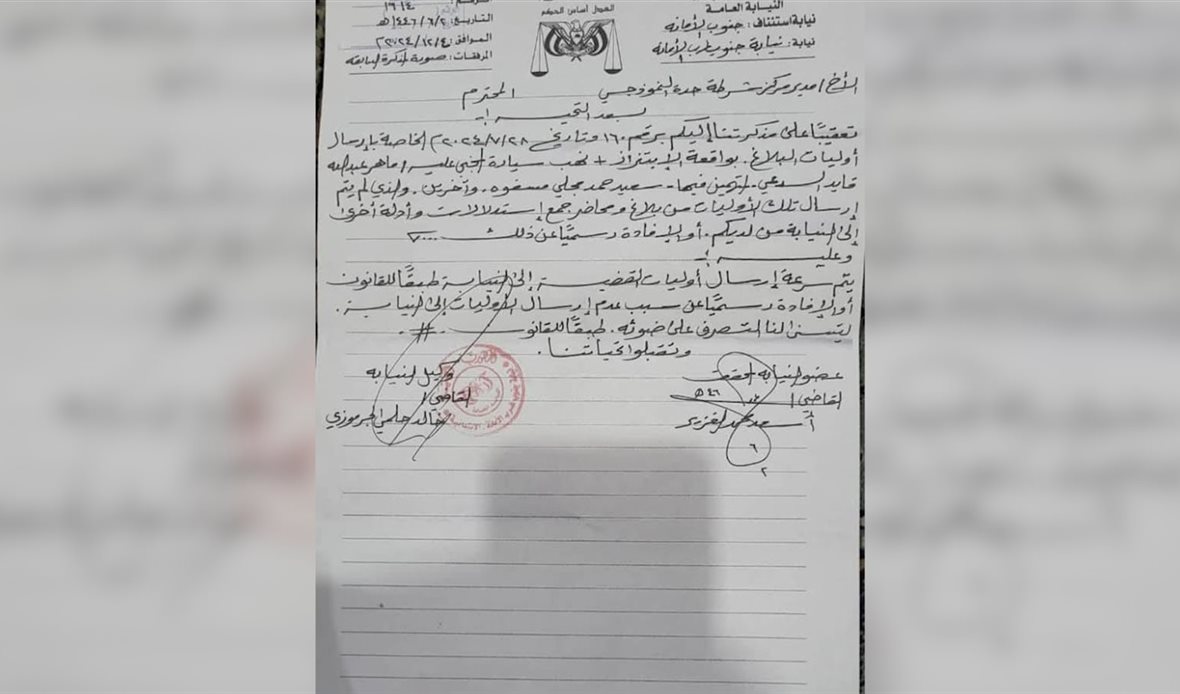 النيابة العامة
نيابة استئناف: جنوب الأمانة
نيابة: نيابة جنوب غرب الأمانة
العدل أساس الحكم
التاريخ: ٢/٦/١٤٤٦هـ
الموافق: ٤/١٢/٢٠٢٤
المرفقات: صورة المذكرة السابقه
الأخ/ مدير مركز شرطة حده النموذجي المحترم
بعد التحيه :-
تعقيبًا على مذكرتنا إليكم برقم ١٦٠ وتاريخ ٢٨/٧/٢٠٢٤م الخاصة بإرسال
أوليات البلاغ. بواقعة الإبتزاز + نهب سيارة المجني عليه/ ماهر عبدالله
قايد السدعي. المتهمين فيها- سعيد حمد مجلي مسفوه. وآخرين. والذي لم يتم
إرسال تلك الأوليات من بلاغ ومحاضر جمع إستدلالات وأدلة أخرى
إلى النيابة من لديكم. أو الإفادة رسميًا عن ذلك
وعليه :-
يتم سرعة إرسال أوليات القضية إلى النيابة طبقًا للقانون
أو الإفادة رسميًا عن سبب عدم إرسال الأوليات إلى النيابة.
ليتسنى لنا التصرف على ضوئه. طبقًا للقانون
وتقبلوا تحياتنا.
عضو النيابة المحقق
القاضي/
وكيل النيابه
القاضي/
خالد حلمي الجرموزي